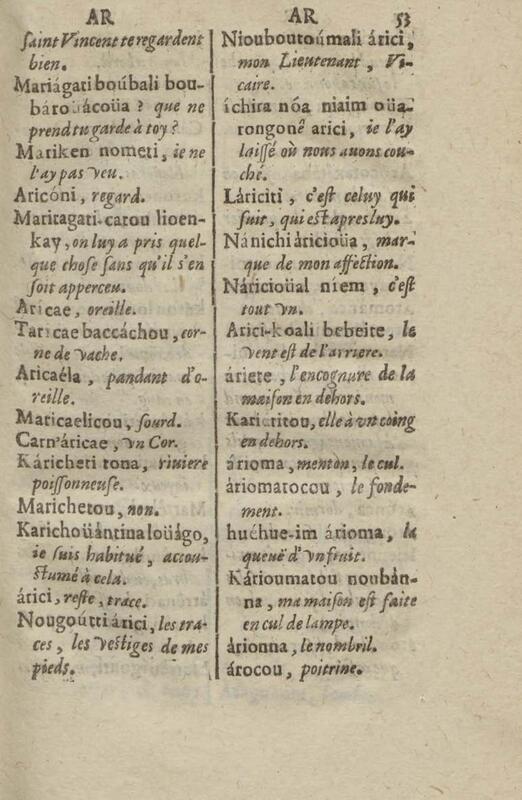 AR
ſaint Vincent te regardent
bien.
Mariágati boúbali bou-
que ne
prend tu garde à toy?
Mariken nometi, ie ne
l'ay pas veu.
Aricóni, regard.
Maritagati-catou lioen-
kay, on luy a pris quel-
que choſe ſans qu'il s'en
ſoit apperceu.
Aricae, oreille.
Taricae baccáchou, cor-
ne de vache.
Aricaéla, pandant d'o-
reille.
Maticaelicou, ſourd.
Carn'áricae, vn Cor.
Káricheti tona, riuiere
poiſſonneuſe.
Marichetou, non.
Karichoüántina loüágo,
ie ſuis habitué, accou-
ſtumé à cela.
árici, reſte, trace.
Nougoutti árici, les tra-
ces, les veſtiges de mes
pieds.
AR
53
Niouboutoúmali árici,
mon Lieutenant, Vi-
caire.
íchira nóa niaim oüa-
rongonê arici, ie l'ay
laiſſé où nous auons cou-
ché.
Láriciti, c'eſt celuy qui
ſuit, qui eſt apres luy.
Nánichi áricioüa, mar-
que de mon affection.
Náricioüal niem, c'eſt
tout vn.
Arici-koali bebeite, le
vent eſt de l'arriere.
áriete, l'encognure de la
maiſon en dehors.
elle à vn coing
en dehors.
árioma, menton, le cul.
áriomatocou, le fonde-
ment.
huéhue-im árioma, la
queuë d'vn fruit.
Kárioumatou noubán-
na, ma maiſon eſt faite
en cul de lampe.
árionna, le nombril.
árocou, poitrine.